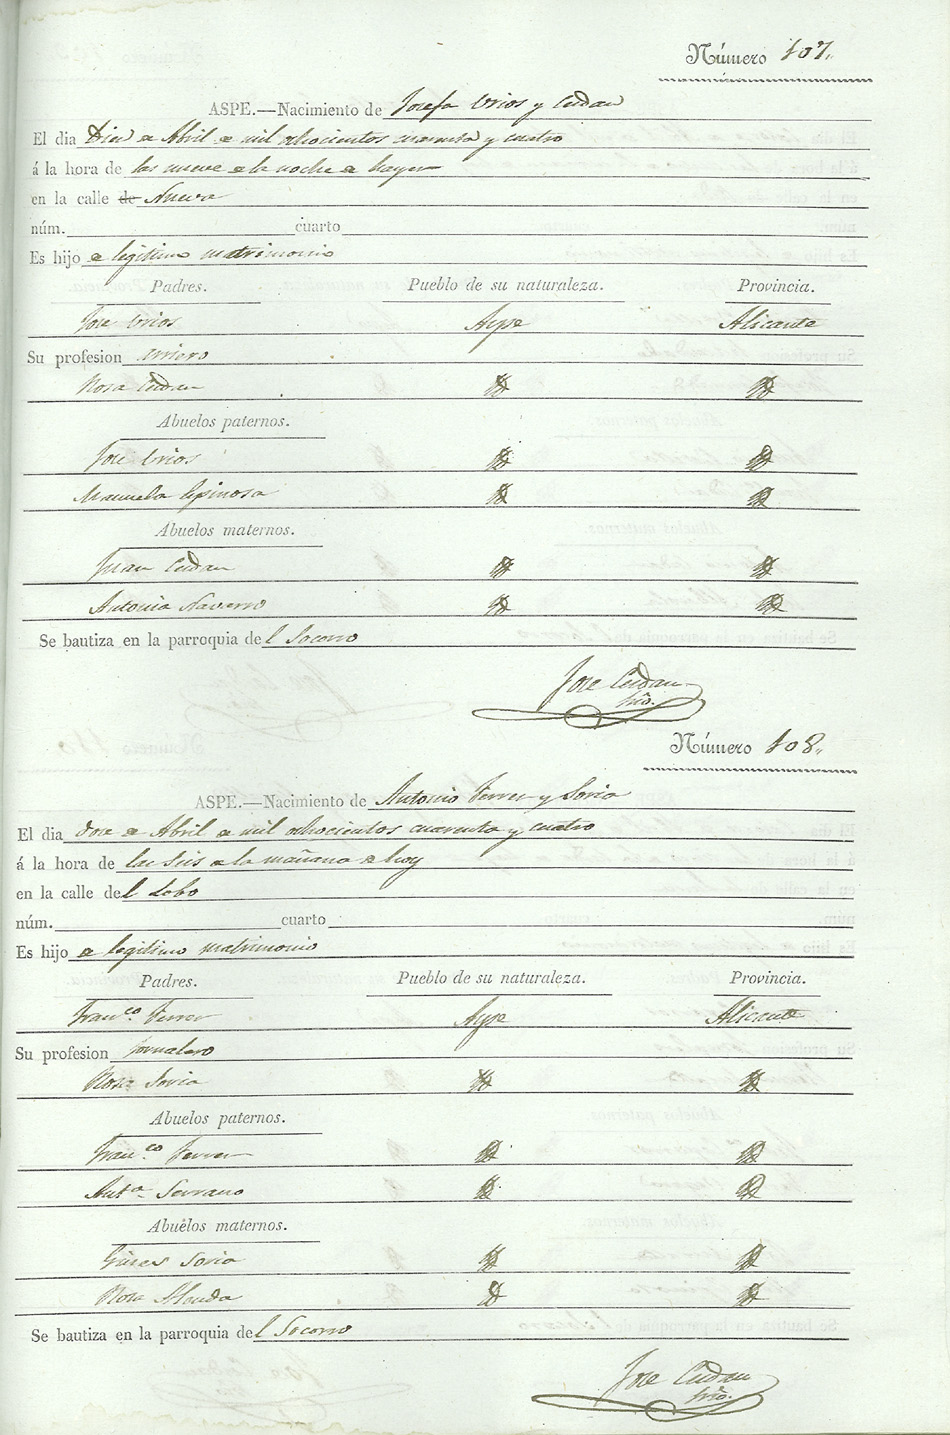 Número 107.
ASPE.—Nacimiento de Josefa Urios y Cerdan
El dia Diez de Abril de mil ochocientos cuarenta y cuatro
á la hora de las nueve de la noche de hayer
en la calle de Nueva
núm. cuarto
Es hijo de legitimo matrimonio
Padres. Pueblo de su naturaleza. Provincia.
Jose Urios Aspe Alicante
Su profesion arriero
Rosa Cerdan
Abuelos paternos.
Jose Urios
Manuela Espinosa
Abuelos maternos.
Juan Cerdan
Antonia Navarro
Se bautiza en la parroquia del Socorro
Jose Cerdan
Srio.
Número 108.
ASPE.—Nacimiento de Antonio Ferrer y Soria
El dia doce de Abril de mil ochocientos cuarenta y cuatro
á la hora de las seis de la mañana de hoy
en la calle del Lobo
núm. cuarto
Es hijo de legitimo matrimonio
Padres. Pueblo de su naturaleza. Provincia.
Franco. Ferrer Aspe Alicante
Su profesion jornalero
Rosa Soria
Abuelos paternos.
Franco. Ferrer
Anta. Serrano
Abuelos maternos.
Gines Soria
Rosa
Se bautiza en la parroquia del Socorro
Jose Cerdan
Srio.